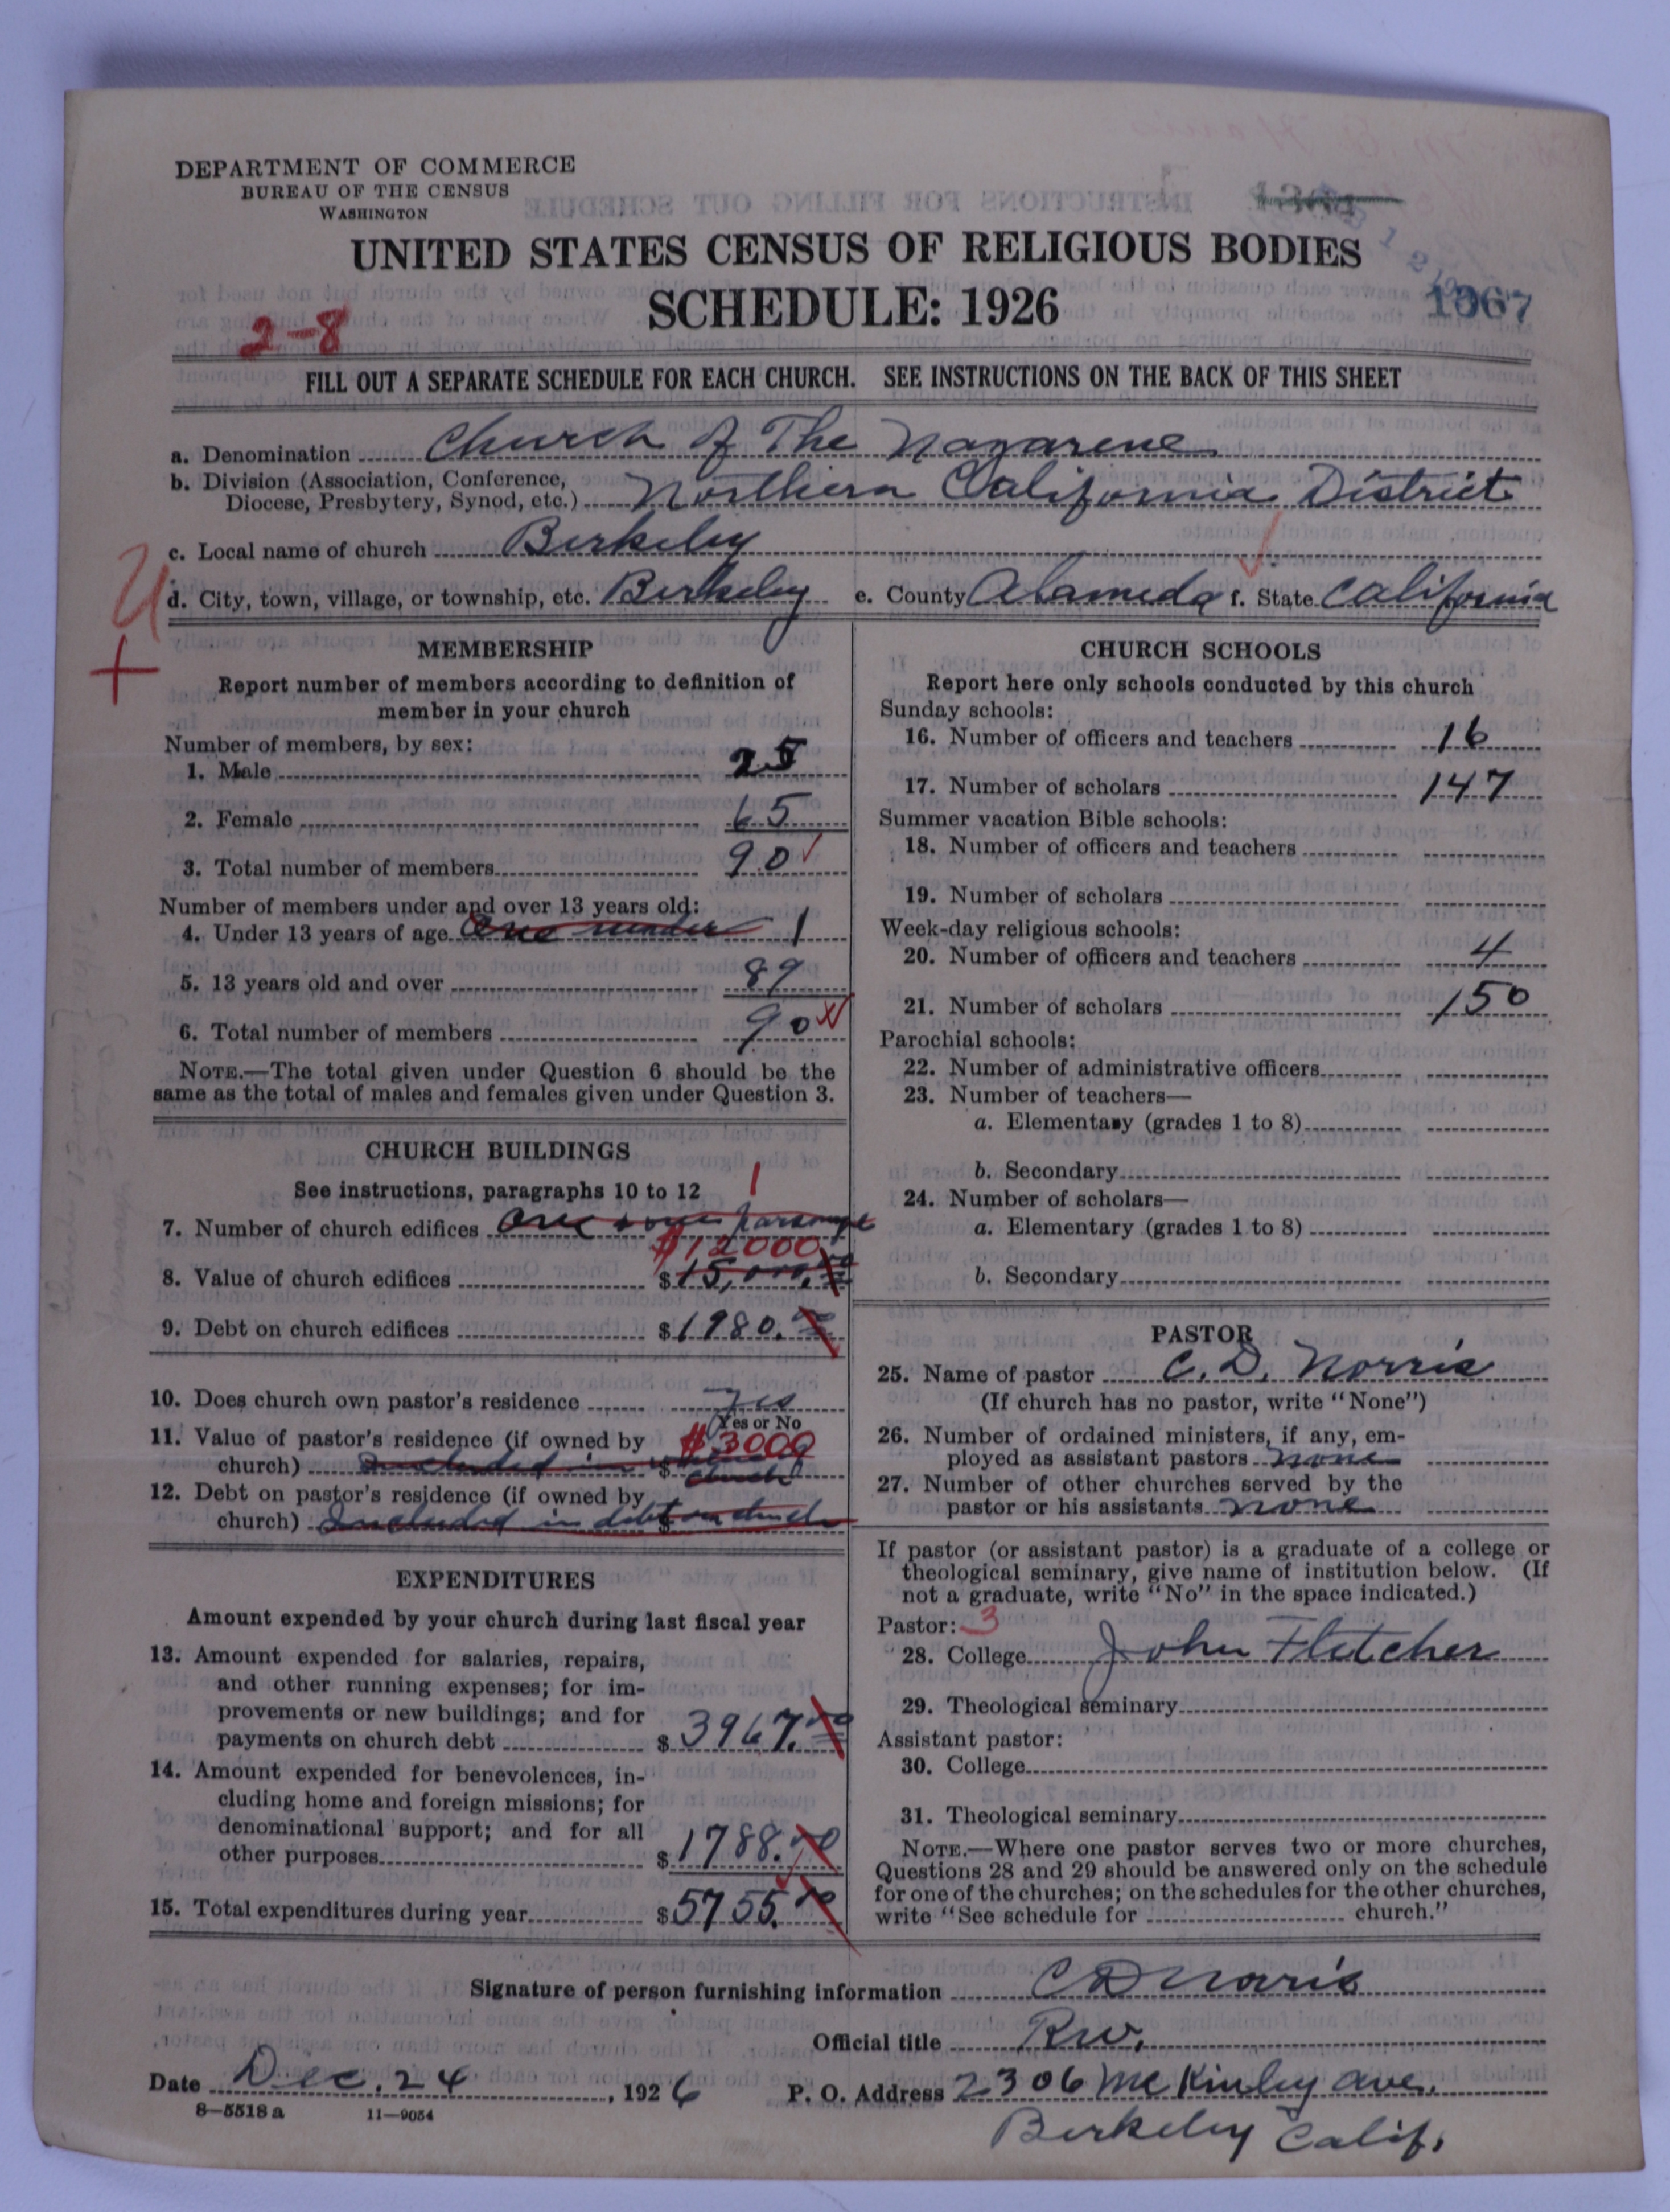 DEPARTMENT OF COMMERCE
BUREAU OF THE CENSUS
WASHINGTON
UNITED STATES CENSUS OF RELIGIOUS BODIES
SCHEDULE: 1926
1367
2-8
FILL OUT A SEPARATE SCHEDULE FOR EACH CHURCH. SEE INSTRUCTIONS ON THE BACK OF THIS SHEET
a. Denomination Church of The Nazarene
b. Division (Association, Conference,
Diocese, Presbytery, Synod, etc.) Northern California District
c. Local name of church Berkeley
d. City, town, village, or township, etc. Berkeley e. County Alameda f. State California
MEMBERSHIP
Report number of members according to definition of
member in your church
Number of members, by sex:
1. Male 25
2. Female 65
3. Total number of members 90
Number of members under and over 13 years old:
4. Under 13 years of age One under 1
5. 13 years old and over 89
6. Total number of members 90
NOTE.—The total given under Question 6 should be the
same as the total of males and females given under Question 3.
CHURCH BUILDINGS
See instructions, paragraphs 10 to 12 1
7. Number of church edifices One + one parsonage
$12000
8. Value of church edifices $15,000.00
9. Debt on church edifices $1980.00
10. Does church own pastor's residence yes
Yes or No
11. Value of pastor's residence (if owned by $3000
church) Included in value of $ church
12. Debt on pastor's residence (if owned by
church) Included in debt on church $
EXPENDITURES
Amount expended by your church during last fiscal year
13. Amount expended for salaries, repairs,
and other running expenses; for im-
provements or new buildings; and for
payments on church debt $3967.00
14. Amount expended for benevolences, in-
cluding home and foreign missions; for
denominational support; and for all
other purposes $1788.00
15. Total expenditures during year $5755.00
CHURCH SCHOOLS
Report here only schools conducted by this church
Sunday schools:
16. Number of officers and teachers 16
17. Number of scholars 147
Summer vacation Bible schools:
18. Number of officers and teachers
19. Number of scholars
Week-day religious schools:
20. Number of officers and teachers 4
21. Number of scholars 150
Parochial schools:
22. Number of administrative officers
23. Number of teachers—
a. Elementary (grades 1 to 8)
b. Secondary
24. Number of scholars—
a. Elementary (grades 1 to 8)
b. Secondary
PASTOR
25. Name of pastor C. D. Norris
(If church has no pastor, write "None")
26. Number of ordained ministers, if any, em-
ployed as assistant pastors none
27. Number of other churches served by the
pastor or his assistants none
If pastor (or assistant pastor) is a graduate of a college or
theological seminary, give name of institution below. (If
not a graduate, write "No" in the space indicated.)
Pastor: 3
28. College John Fletcher
29. Theological seminary
Assistant pastor:
30. College
31. Theological seminary
NOTE.—Where one pastor serves two or more churches,
Questions 28 and 29 should be answered only on the schedule
for one of the churches; on the schedules for the other churches,
write "See schedule for church."
Signature of person furnishing information C D Norris
Official title Rev.
Date Dec. 24, 1926 P. O. Address 2306 McKinley ave.
Berkeley Calif.
8—5518 a 11—9054